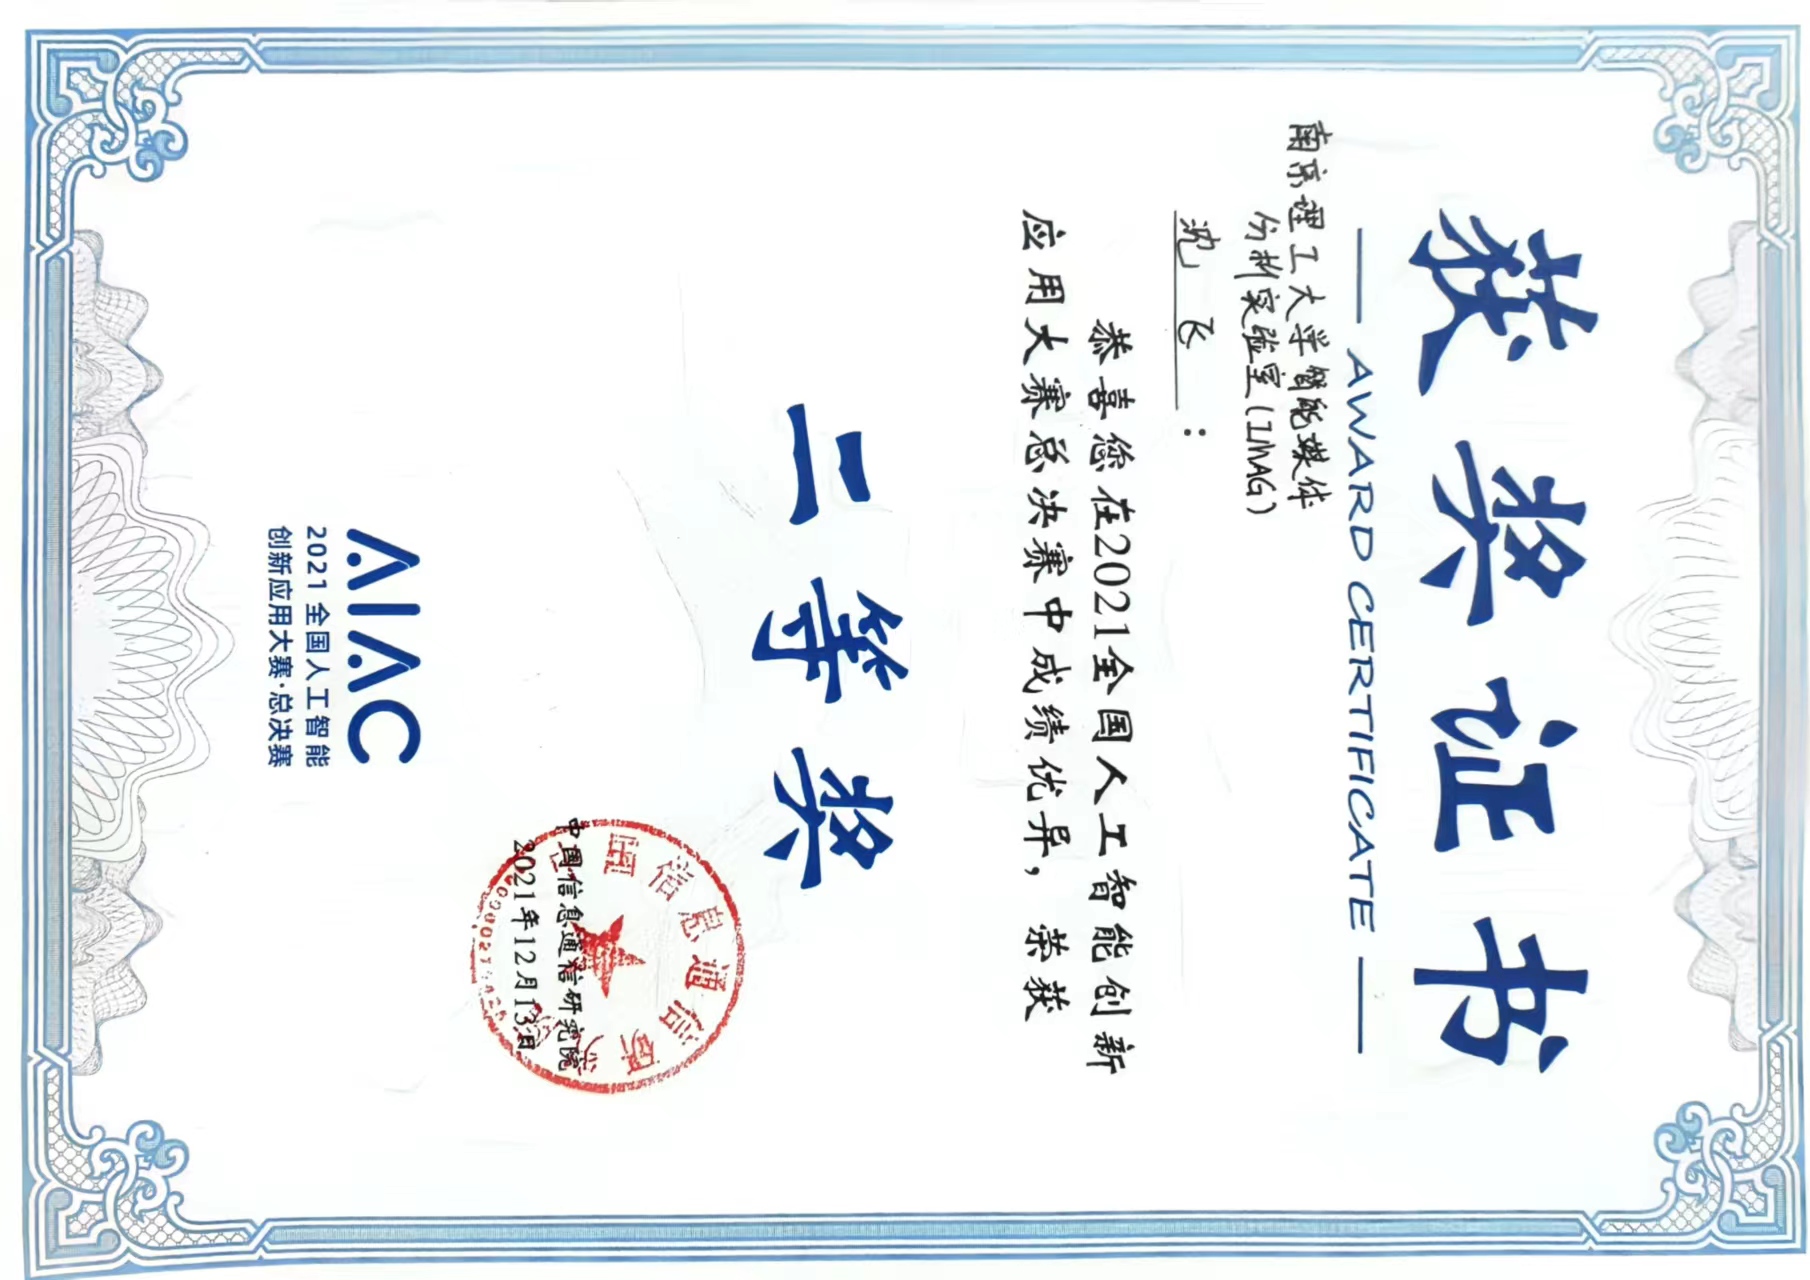 获奖证书
AWARD CERTIFICATE
南京理工大学智能媒体
分析实验室(IMAG)
沈飞：
恭喜您在2021全国人工智能创新
应用大赛总决赛中成绩优异，荣获
二等奖
中国信息通信研究院
中国信息通信研究院
2021年12月13日
AIAC
2021 全国人工智能
创新应用大赛·总决赛